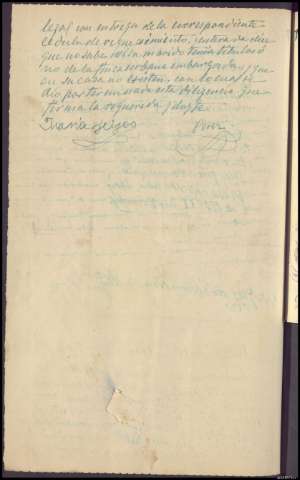 legal con entrega de la correspondiente
cédula de requerimiento, entera de
que no sabe si la marido tenia titulos ó
no de la finca urbana embargada, y que
en su casa no existen, con lo cual se
dio por terminada esta diligencia que
firma la requerida y doy fe
Maria Seijas